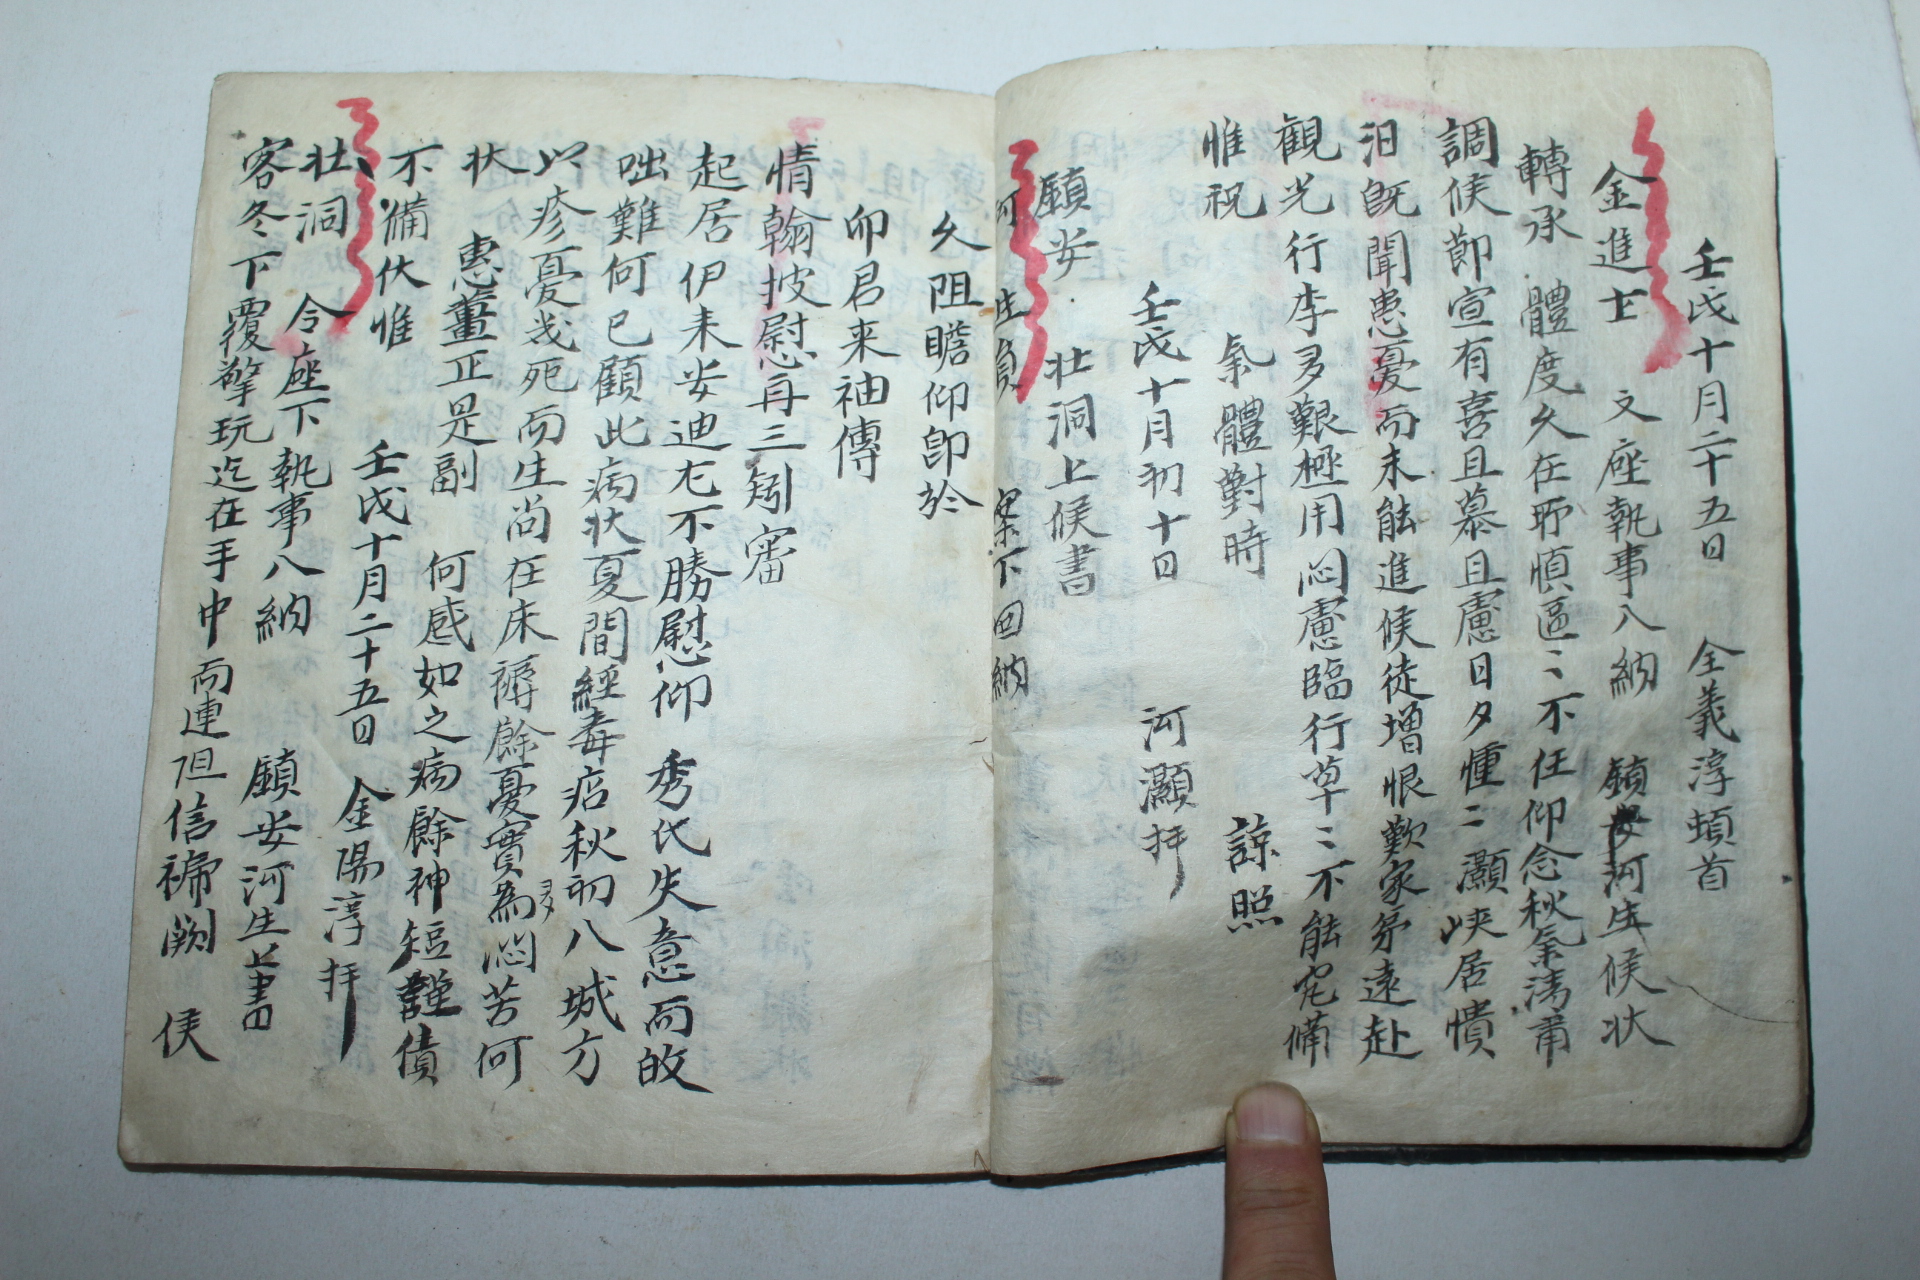 壬戌十月二十五日 全義淳頓首
金進士 文座執事入納 鎮安河生候狀
轉承 體度久在耶慎區〻不任仰念秋氣淸肅
調候節宣有喜且慕且慮日夕憧〻灝峽居憒
汨旣聞患憂而未能進候徒增恨歎家舅遠赴
觀光行李多艱極用悶慮臨行草〻不能究備
惟祝 氣體對時 諒照
壬戌十月初十日 河灝拜
鎮安 壯洞上候書
河生員 案下回納
久阻瞻仰卽於
卯君来袖傳
情翰披慰再三矧審
起居伊来安迪尤不勝慰仰 秀氏失意而故
咄難何已顧此病狀夏間經毒痁秋初八城方
以疹憂幾死而生尚在床褥餘憂實爲多悶苦何
狀 惠薑正是副 何感如之病餘神短謹僨
不備伏惟
壬戌十月二十五日 金陽淳拜
壯洞 令座下執事入納 鎮安河生上書
客冬下覆擎玩迄在手中而連阻信褫闕 候